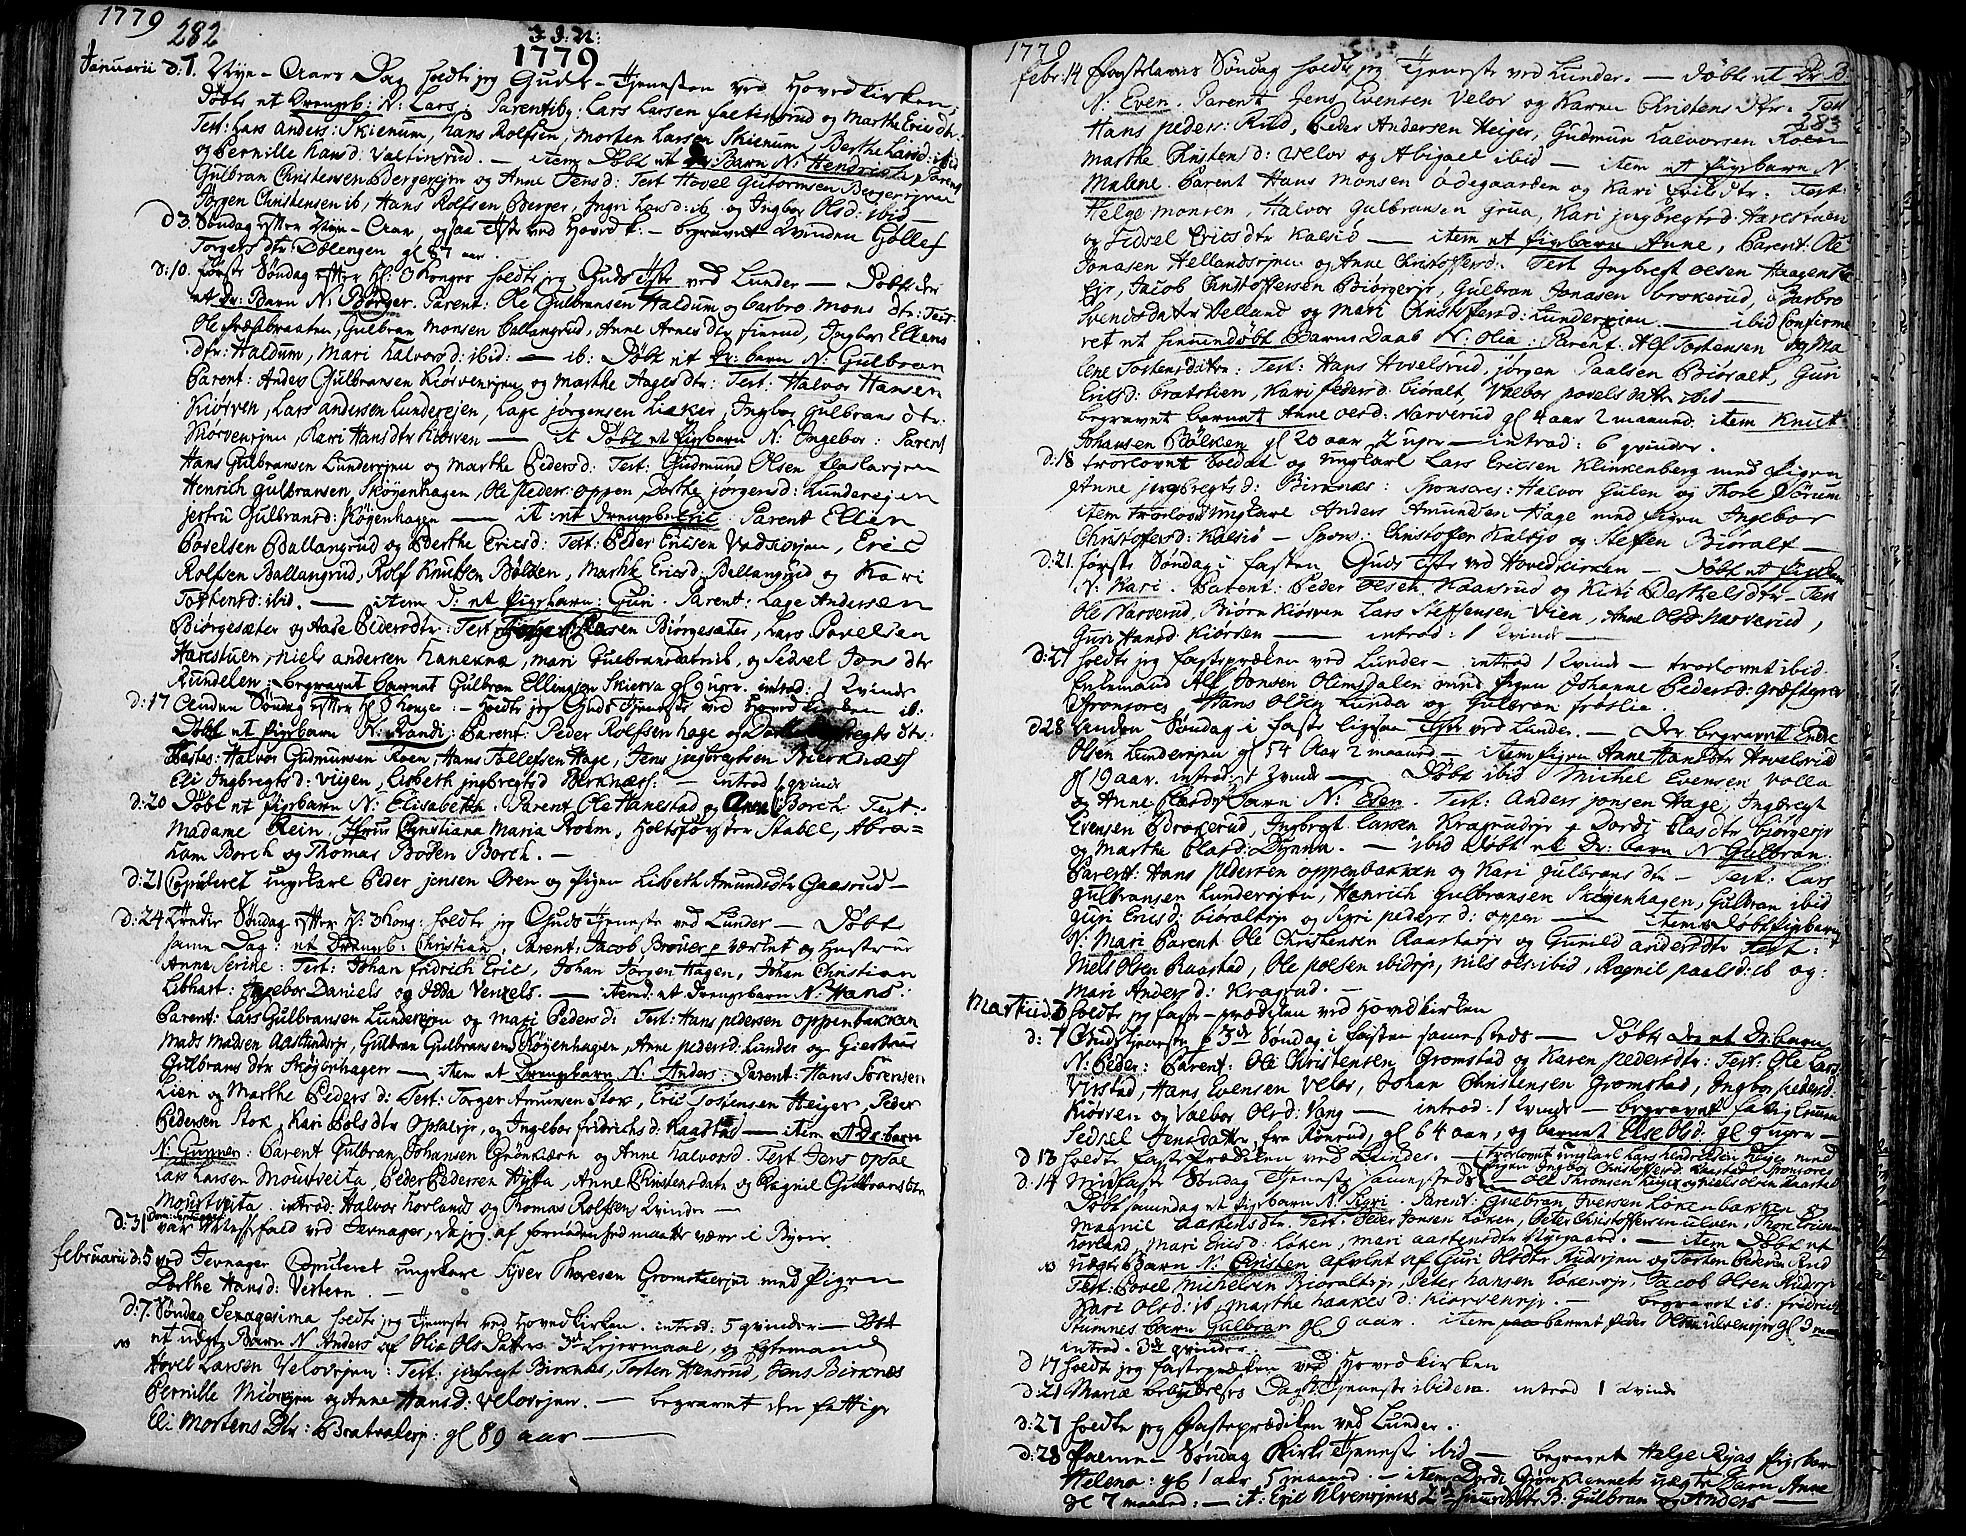 1779
282
J. J. N:
1779
Januarii d: 1. Nye-Aars Dag holdte jeg Guds-Tjenesten ved Hovedkirken,
Döbte et Drengeb: N: Lars: Parentib: Lars Larsen faetisrud og Marthe Ericsdtr
Test: Lars Anders: Skienum, Hans Rolfsen, Morten Larsen Skienum, Berthe Larsd: ibid
og Pernille Hansd: Valtinsrud. — item Döbt et Barn N: Hendrick, Parent
Gulbran Christensen Bergerejen og Anne Jensd: Test Hovel Gutormsen Bergerejen
Jörgen Christensen ib, Hans Rolfsen Berger, Ingri Larsd: ib og Ingbor Olsd: ibid —
d 3. Söndag efter Nye-Aar, ogsaa Tjste ved Hovedk: — begravet Qvinden Gollef
Torgersdtr: Dölengen gl 87 aar.
d: 10. förste Söndag efter Hl: 3 Konger holdte jeg Guds Tjste ved Lunder — Döbt der
et Dr: Barn N: Börger. Parent: Ole Gulbransen Haldum og barbro Mons dtr: Test
Ole Præstbraaten, Gulbran Monsen ballangrud, Anne Arnesdtr finrud, Ingbor Ellens
dtr: Haldum, Mari Halvorsd: ibid: — ib: Döbt et dr: barn N: Gulbran
Parent: Anders Gulbransen Kiörvenejen og Marthe Aagesdtr: Test: Halvor Hansen
Kiörven, Lars Andersen Lunderejen, Lage Jörgensen Lieker, Ingbor Gulbrans dtr:
Kiörvenejen, Kari Hansdtr Kiörven — it Döbt et Pigebarn N: Ingebor: Parent
Hans Gulbransen Lunderejen og Marthe Pedersd: Test: Gudmund Olsen
Henrich Gulbransen Sköyenhagen, Ole Peders: oppen, Dorthe Jörgensd: Lunderejen
Gulbransd: Köyenhagen — it et Drengeb: Eric. Parent Ellen
Povelsen Ballangrud og Berthe Ericsd: Test: Peder Ericsen, Eric
Rolfsen Ballangrud, Rolf Knutsen Bölden, Marthe Ericsd: Ballangrud og Kari
Tostensd: ibid. — item D: et Pigebarn: Guri. Parent: Lage Andersen
Biörgesæter og Aase Pedersdtr: Test Biörgesæter, Lars Povelsen
Harestuen, Niels Andersen Hanekne, Mari Gulbransdatter ib, og Sidsel Jons dtr
Rundelen: begravet barnet Gulbran Ellengsen Skierva gl 9 uger. introd: 1 Qvinde
d: 17 Anden Söndag efter Hl 3 Konge: — Holdte jeg Guds Tjeneste ved Hovedkirken ib:
Döbt et Pigebarn N: Randi: Parent: Peder Rolfsen Hage og
Testes: Halvor Gudmunsen Roen, Hans Tollefsen Hage, Jens Ingbregtsen Bierknæs
Eli Ingbregtsd: Viigen, Lisbeth Ingbregtsd Berknæs: — introd 1 qvinde
d: 20 Döbt et Pigebarn N: Elisabeth: Parent Ole Hanestad og Anne Borch Test.
Madame Rein, Christiana Maria Roem, Holtsforster Stabel, Abra=
ham Borch og Thomas Boden Borch. —
d: 21 Copuleret ungekarl Peder Jensen Ören og Pigen Lisbeth Amundsdtr Gaasrud —
d: 24 Tredie Söndag efter H: 3 Kong: holdte jeg Guds Tjeneste ved Lunder — Döbt
samme Dag: et Drengeb: Christian, Parent: Jacob Brouer p værket og Hustrue
Anne Serine: Test: Johan fridrich Eric, Johan Jörgen Hagen, Johan Christian
Libhart: Ingebor Daniels og Edda Venzels. — item et Drengebarn N: Hans:
Parent: Lars Gulbransen Lunderejen og Mari Pedersd: Test: Hans Pedersen oppenbakken
Mads Madsen, Gulbran Gulbransen Köyenhagen, Anne Pedersd: Lunder og Giertrud
Gulbrans dtr Sköyenhagen — item et Drengebarn N: Anders: Parent: Hans Sörensen
Lien og Marthe Peders d: Test: Torger Amunsen Stok, Eric Tostensen Heiger, Peder
Pedersen Stok, Kari Pols dtr Opsalejr, og Ingebor fridrichs d: Raastad — item et Dr barn
N: Gunner: Parent Gulbran Johansen Grönkiern og Anne Halvorsd. Test Jens Opsal
Lars Larsen Mousvita, Peder Pedersen Hytta, Anne Christensdatr og Ragnil Gulbransdtr
Mousvita. introd: Halvor Horlands og Thomas Rolfsens Qvinder —
d: 31 var Messefald ved Jevnager, da jeg af fornödenhed maatte være i Byen.
februarii d: 5 ved Jevnager Copuleret ungekarl Syver Thoresen Gromstaejen med Pigen
Dorthe Hansd: Vestern. —
d: 7. Söndag Sexagesima holdt jeg Tjeneste ved Hovedkirken. introd: 5 qvinder — Döbt
et uægte Barn N. Anders af Olia Ols Datter 3de Lejermaal, og Egtemand
Hovel Larsen Velovejen: Test: Bireknes, Torsten Hensrud, Jens Birknæs
Pernille Miörejen og Anne Hansd: Velovejen. — begravet den fattige
Eli Mortens Dtr: Bratvalejr: gl 89 aar —
1779
283
febr: 14 Fastelavns Söndag holdt jeg Tjeneste ved Lunder. — Döbt et Dr B
N: Even. Parent Jens Evensen Velov og Karen Christens dtr. Test
Hans Peders: Rud, Peder Andersen Heiger, Gudmun Halvorsen Roen
Marthe Christensd: Velov og Abigael ibid — item et Pigebarn N
Malene. Parent Hans Monsen Ödegaarden og Kari Erics dtr. Test:
Helge Monsen, Halvor Gulbransen Grua, Kari Ingbregtsd: Harestuen
og Sidsel Erics dtr Kalsiö — item et Pigebarn Anne, Parent: Ole
Jonasen Hellandsejen og Anne Christoffersd: Test Ingbregt Olsen Haagenst
Ejr, Jacob Christoffersen Biörgerejr, Gulbran Jonasen brokerud, Barbro
Svendsdatr Velland og Mari Christofersd: Lunderejen. — ibid Confirme
ret et hiemmedöbt Barns Daab N: Olia: Parent: Alf Tostensen og Ma
lene Tostensdatr: Test: Hans Hovelsrud, Jörgen Paalsen Biöralt, Guri
Ericsd: bratstien, Kari Pedersd: Biöralt, Valbor Povelsdatr ibid —
begravet barnet Anne Olsd: Narverud gl 4 aar 2 maaned. item Knut
Johansen Bölken gl 20 aar 2 uger — introd: 6 qvinder.
d: 18 trorlovet Soldat og Ungkarl Lars Ericsen Klinkenberg med Pigen
Anne Ingbregtsd: Birknæs: Sponsores: Halvor Gulen og Thore Sörum
item trorlovet Ungkarl Anders Amundsen Hage med Pigen Ingebor
Christofersd: Kalsiö — Spons: Christoffer Kalsjö og Steffen Biöralt —
d: 21. förste Söndag i fasten Guds Tjste ved Hovedkirken — Döbt et Pigebarn
N: Kari. Parent: Peder Olsen Kaasrud og Kisti Berthelsdtr — Test
Ole Narverud, Biörn Kiörven Lars Steffensen Vien, Anne Olsd Narverud,
Guri Hansd: Kiörven — introd: 1 Qvinde —
d: 27 holdte jeg fasteprædken ved Lunder — introd 1 Qvinde — trorlovet ibid.
Enkemand Alf Jonsen Olimsdalen med Pigen Johanne Pedersd: Græstejen
Sponsores Hans Olsen Lunder og Gulbran froslie.
d 28 Anden Söndag i faste ligesaa Tjste ved Lunder. — Der begravet Endre
Olsen Lunderejen gl 54 Aar 2 maaned — item Pigen Anne Hansdtr Hovelsrud
gl 19 aar. introd: 1 Qvinde — Döbt ibid Michel Evensen Volla
og Anne Clasdtr Barn N: Eden. Test: Anders Jonsen Hage, Ingbregt
Evensen Brokerud, Ingbregt Larsen Kragsrudejr, Dordi Clasdtr biörgejr
og Marthe Clasd: Dynna. — ibid Döbt et Dr: barn N Gulbran:
Parent: Hans Pedersen oppenbakken og Kari Gulbrans dtr — Test: Lars
Gulbransen Lunderejen, Henrich Gulbransen Sköyenhagen, Gulbran ibid
Guri Ericsd: bioraltejr og Siri Peders d: oppen — item Döbt Pigebarn
N: Mari Parent Ole Christensen Raastaejr og Gunild Andersdtr Test:
Niels Olsen Raastad, Ole Polsen ibidejr, Nils Ols: ibid, Ragnil Paalsd: ib og:
Mari Anders d: Kragrud. —
Martii d: 3 holdt jeg fast-prædiken ved Hovedkirken
d: 7 Guds tjeneste p 3de Söndag i fasten samesteds — Döbt der et Dr: barn
N: Peder: Parent: Ole Christensen Gromstad og Karen Pedersdtr: Test: Ole Lars
Virstad, Hans Evensen Velov, Johan Christensen Gromstad, Ingbor Pedersd:
Kiörven og Valbor Olsd: Vang — introd: 1 Qvinde — begravet fattig Enken
Sidsel Jensdatter fra Rönrud, gl 64 aar, og barnet Else Olsd: gl 9 uger —
d 13 holdt fasteprædken ved Lunder. — trorlovet ungkarl Lars Hendricksen Heiger med
Pigen Ingbor Christoffersd Raastad Sponsores
d: 14 Midfaste Söndag Tjeneste samesteds — Ole Thronsen Heiger og Niels Olsen Raastad
Döbt samedag et Pigebarn N: Siri. Parent: Gulbran Iversen Löken bakken og
Magnil Aastensdtr. Test: Peder Jonsen Löken, Peter Christoffersen Ulven, Thore Ericsen
Horland, Mari Ericsd: Löken, Mari Aastensdtr Nysgaard. — item Döbt et
uægte Barn N: Christen afvlet af Guri Olsdtr Rudsejen og Torsten Pedersen Rud
Test: Povel Michelsen Bioraltejr, Peter Hansen Lökenejr, Jacob Olsen Rudsejr
Kari Olsd: ib, Marthe Haakes d: Kiörvenejr. — begravet ib: fridrich
Stumnes barn Gulbran gl 9 aar. item barnet Peder Olsen ulvenejr gl 9 maan
introd. 3de qvinder —
d 17 holdt jeg fasteprædken ved Hovedkirken
d: 21 Mariæ bebudelses Dags Tjeneste ibidem. introd 1 Qvinde
d: 27 holdte jeg Fasteprædiken ved Lunder.
d: 28 Palme-Söndag Kirke Tjeneste ibid — begravet Helge Ryas Pigebarn
Helena: gl 1 aar 5 maaned. — item Dordi Grönkiernets uægte Barn Anne
gl 7 maaned: — it: Eric Ulvenejens 2de B: Gulbran og Anders —